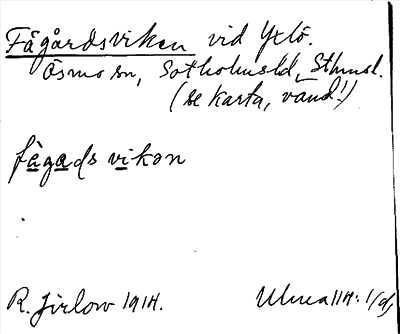 Fågårdsviken vid Yxlö.
Ösmo sn, Sotholmsld, Sthmsl.
(se karta, vänd!)
fågads vikən
R. Jirlow 1914.